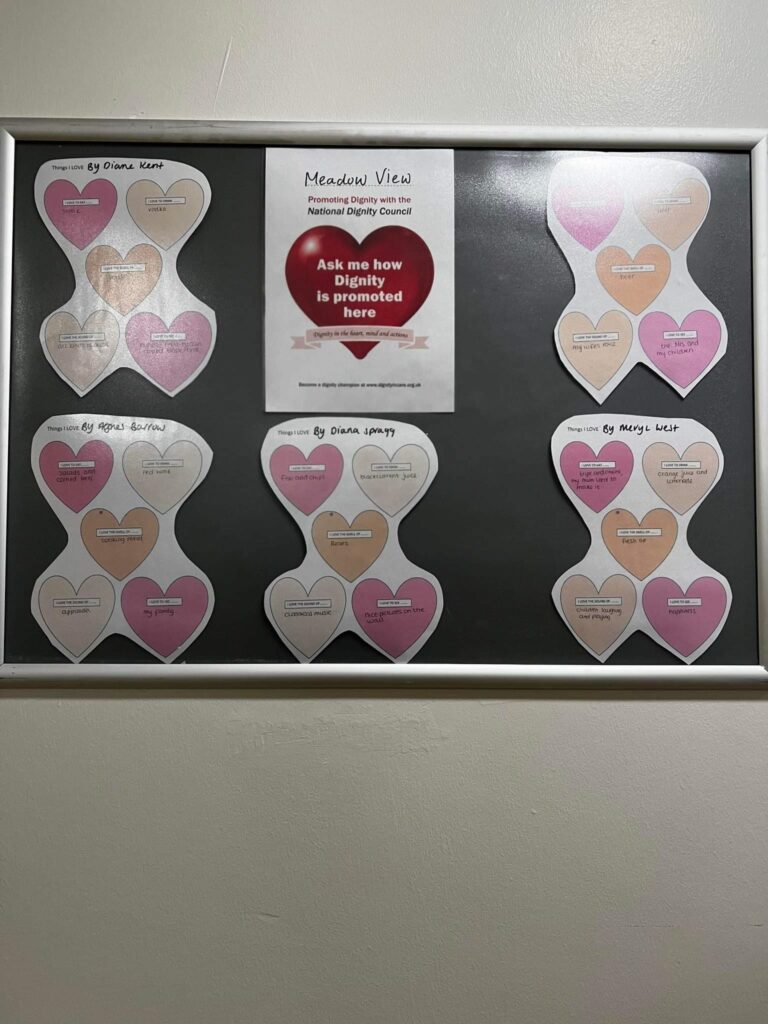 Things I LOVE By Diane Kent
I LOVE TO EAT ......
I LOVE TO DRINK ......
vodka
I LOVE THE SMELL OF ......
I LOVE THE SOUND OF ......
I LOVE TO SEE ......
Meadow View
Promoting Dignity with the
National Dignity Council
Ask me how
Dignity
is promoted
here
Dignity in the heart, mind and actions
Become a dignity champion at www.dignityincare.org.uk
beer
I LOVE THE SMELL OF ......
beer
I LOVE THE SOUND OF ......
my wifes voice
I LOVE TO SEE ......
my children
Things I LOVE By Agnes Barrow
I LOVE TO EAT ......
Salads and
corned beef
I LOVE TO DRINK ......
red wine
I LOVE THE SMELL OF ......
cooking
I LOVE THE SOUND OF ......
applause
I LOVE TO SEE ......
my family
Things I LOVE By Diana Spragg
I LOVE TO EAT ......
Fish and chips
I LOVE TO DRINK ......
blackcurrant juice
I LOVE THE SMELL OF ......
Roses
I LOVE THE SOUND OF ......
classical music
I LOVE TO SEE ......
nice pictures on the
wall
Things I LOVE By Meryl West
I LOVE TO EAT ......
tripe and onions
my mum used to
make it
I LOVE TO DRINK ......
orange juice and
lemonade
I LOVE THE SMELL OF ......
fresh air
I LOVE THE SOUND OF ......
children laughing
and playing
I LOVE TO SEE ......
happiness